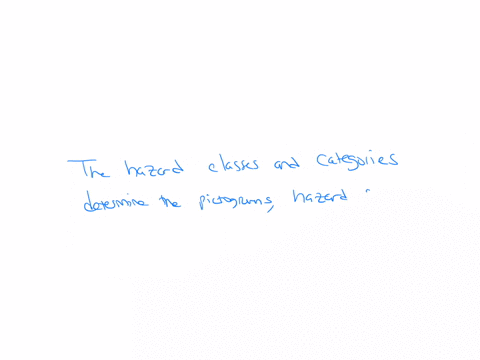 The hazard classes and categories
determine the pictograms, hazard